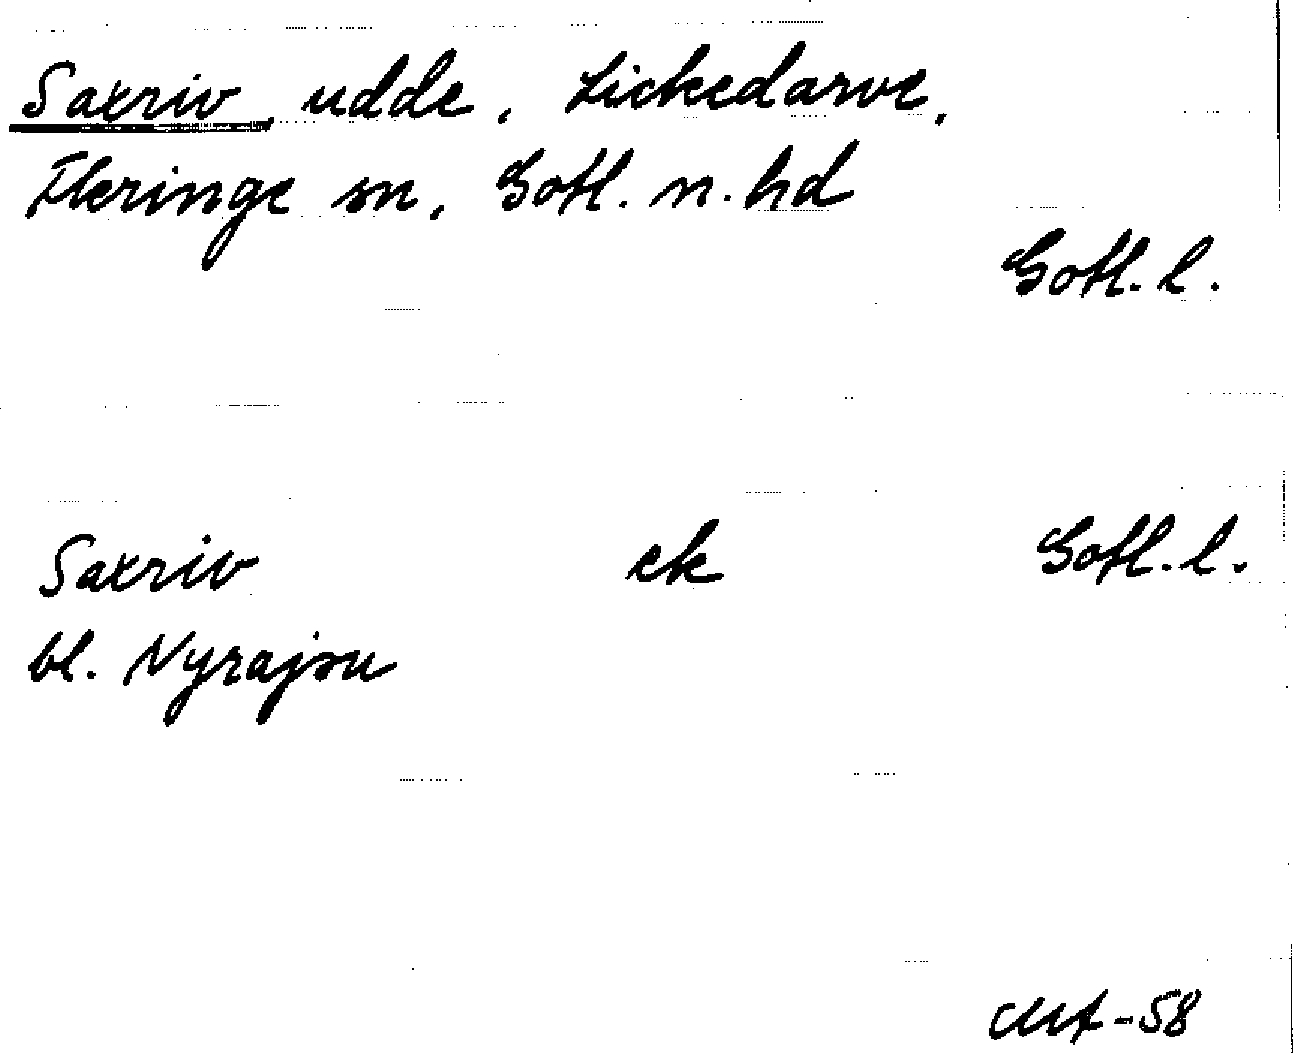 Saxriv, udde, Lickedarve,
Fleringe sn, Gotl. n. hd
Gotl. l.
Saxriv ek Gotl. l.
bl. Nyrajsu
-58